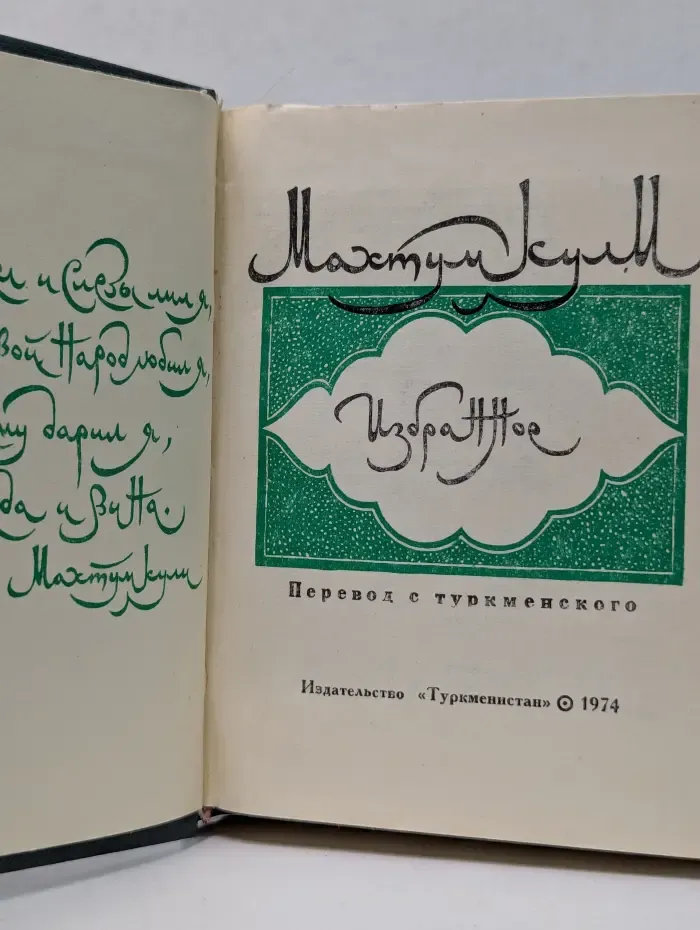 и Слезы лил я,
Народ любил я,
дарил я,
и вина.
Махтумкули
Махтумкули
Избранное
Перевод с туркменского
Издательство «Туркменистан» 1974